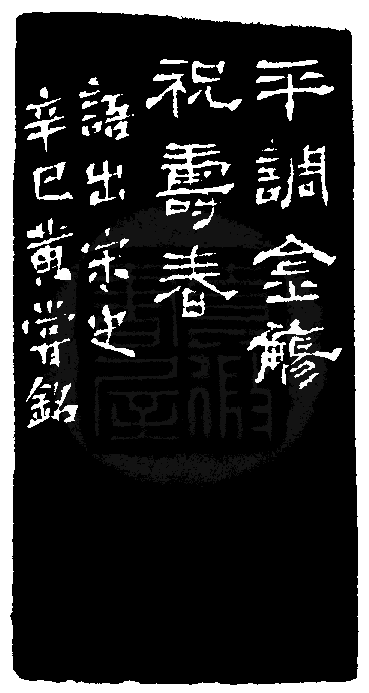 平調金觴
祝壽春
語出宋史
辛巳黃嘗銘